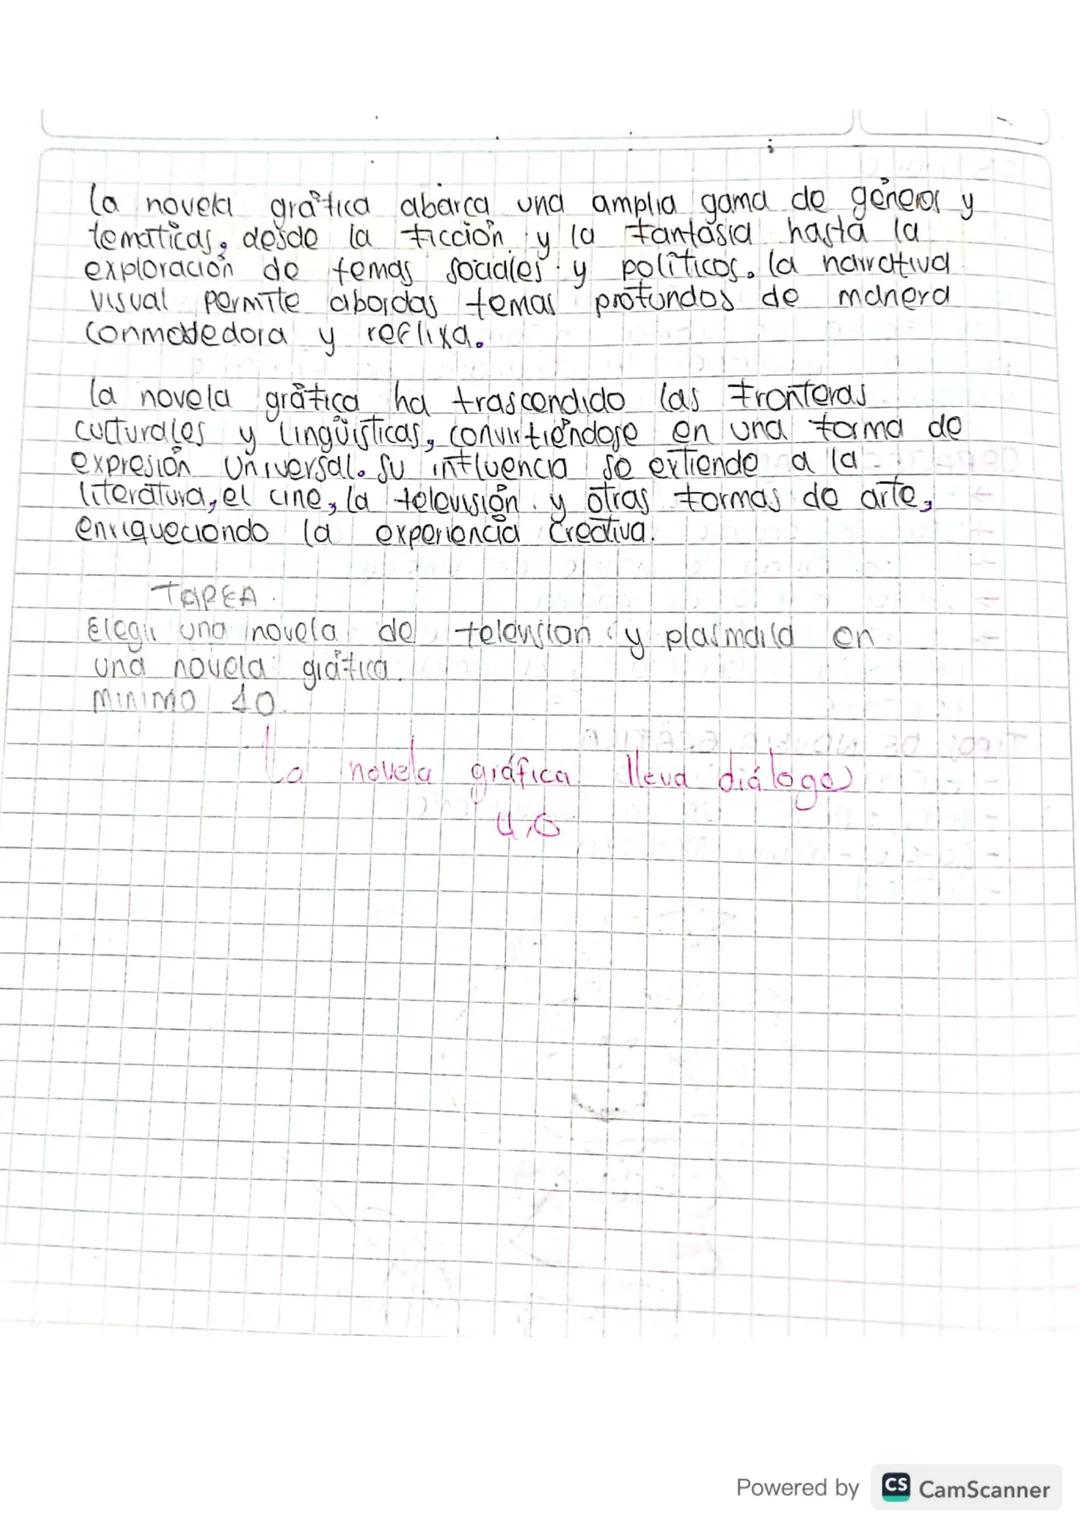 la novela gráfica abarca una amplia gama de géneros y
tematicas, desde la ficción y la fantasía hasta la
exploración de temas sociales y políticos. la narrativa
visual permite abordas temas profundos de manera
conmovedora y reflixa.
la novela gráfica ha trascendido las fronteras
culturales y lingüísticas, convirtiéndose en una forma de
expresión universal. su influencia se extiende a la
literatura, el cine, la televisión y otras formas de arte,
enriqueciendo la experiencia creativa.
TAREA.
Elegir una novela de television y plasmarla en
una novela gráfica.
minimo 10.
La novela gráfica lleva diálogo
4,0
Powered by CS CamScanner